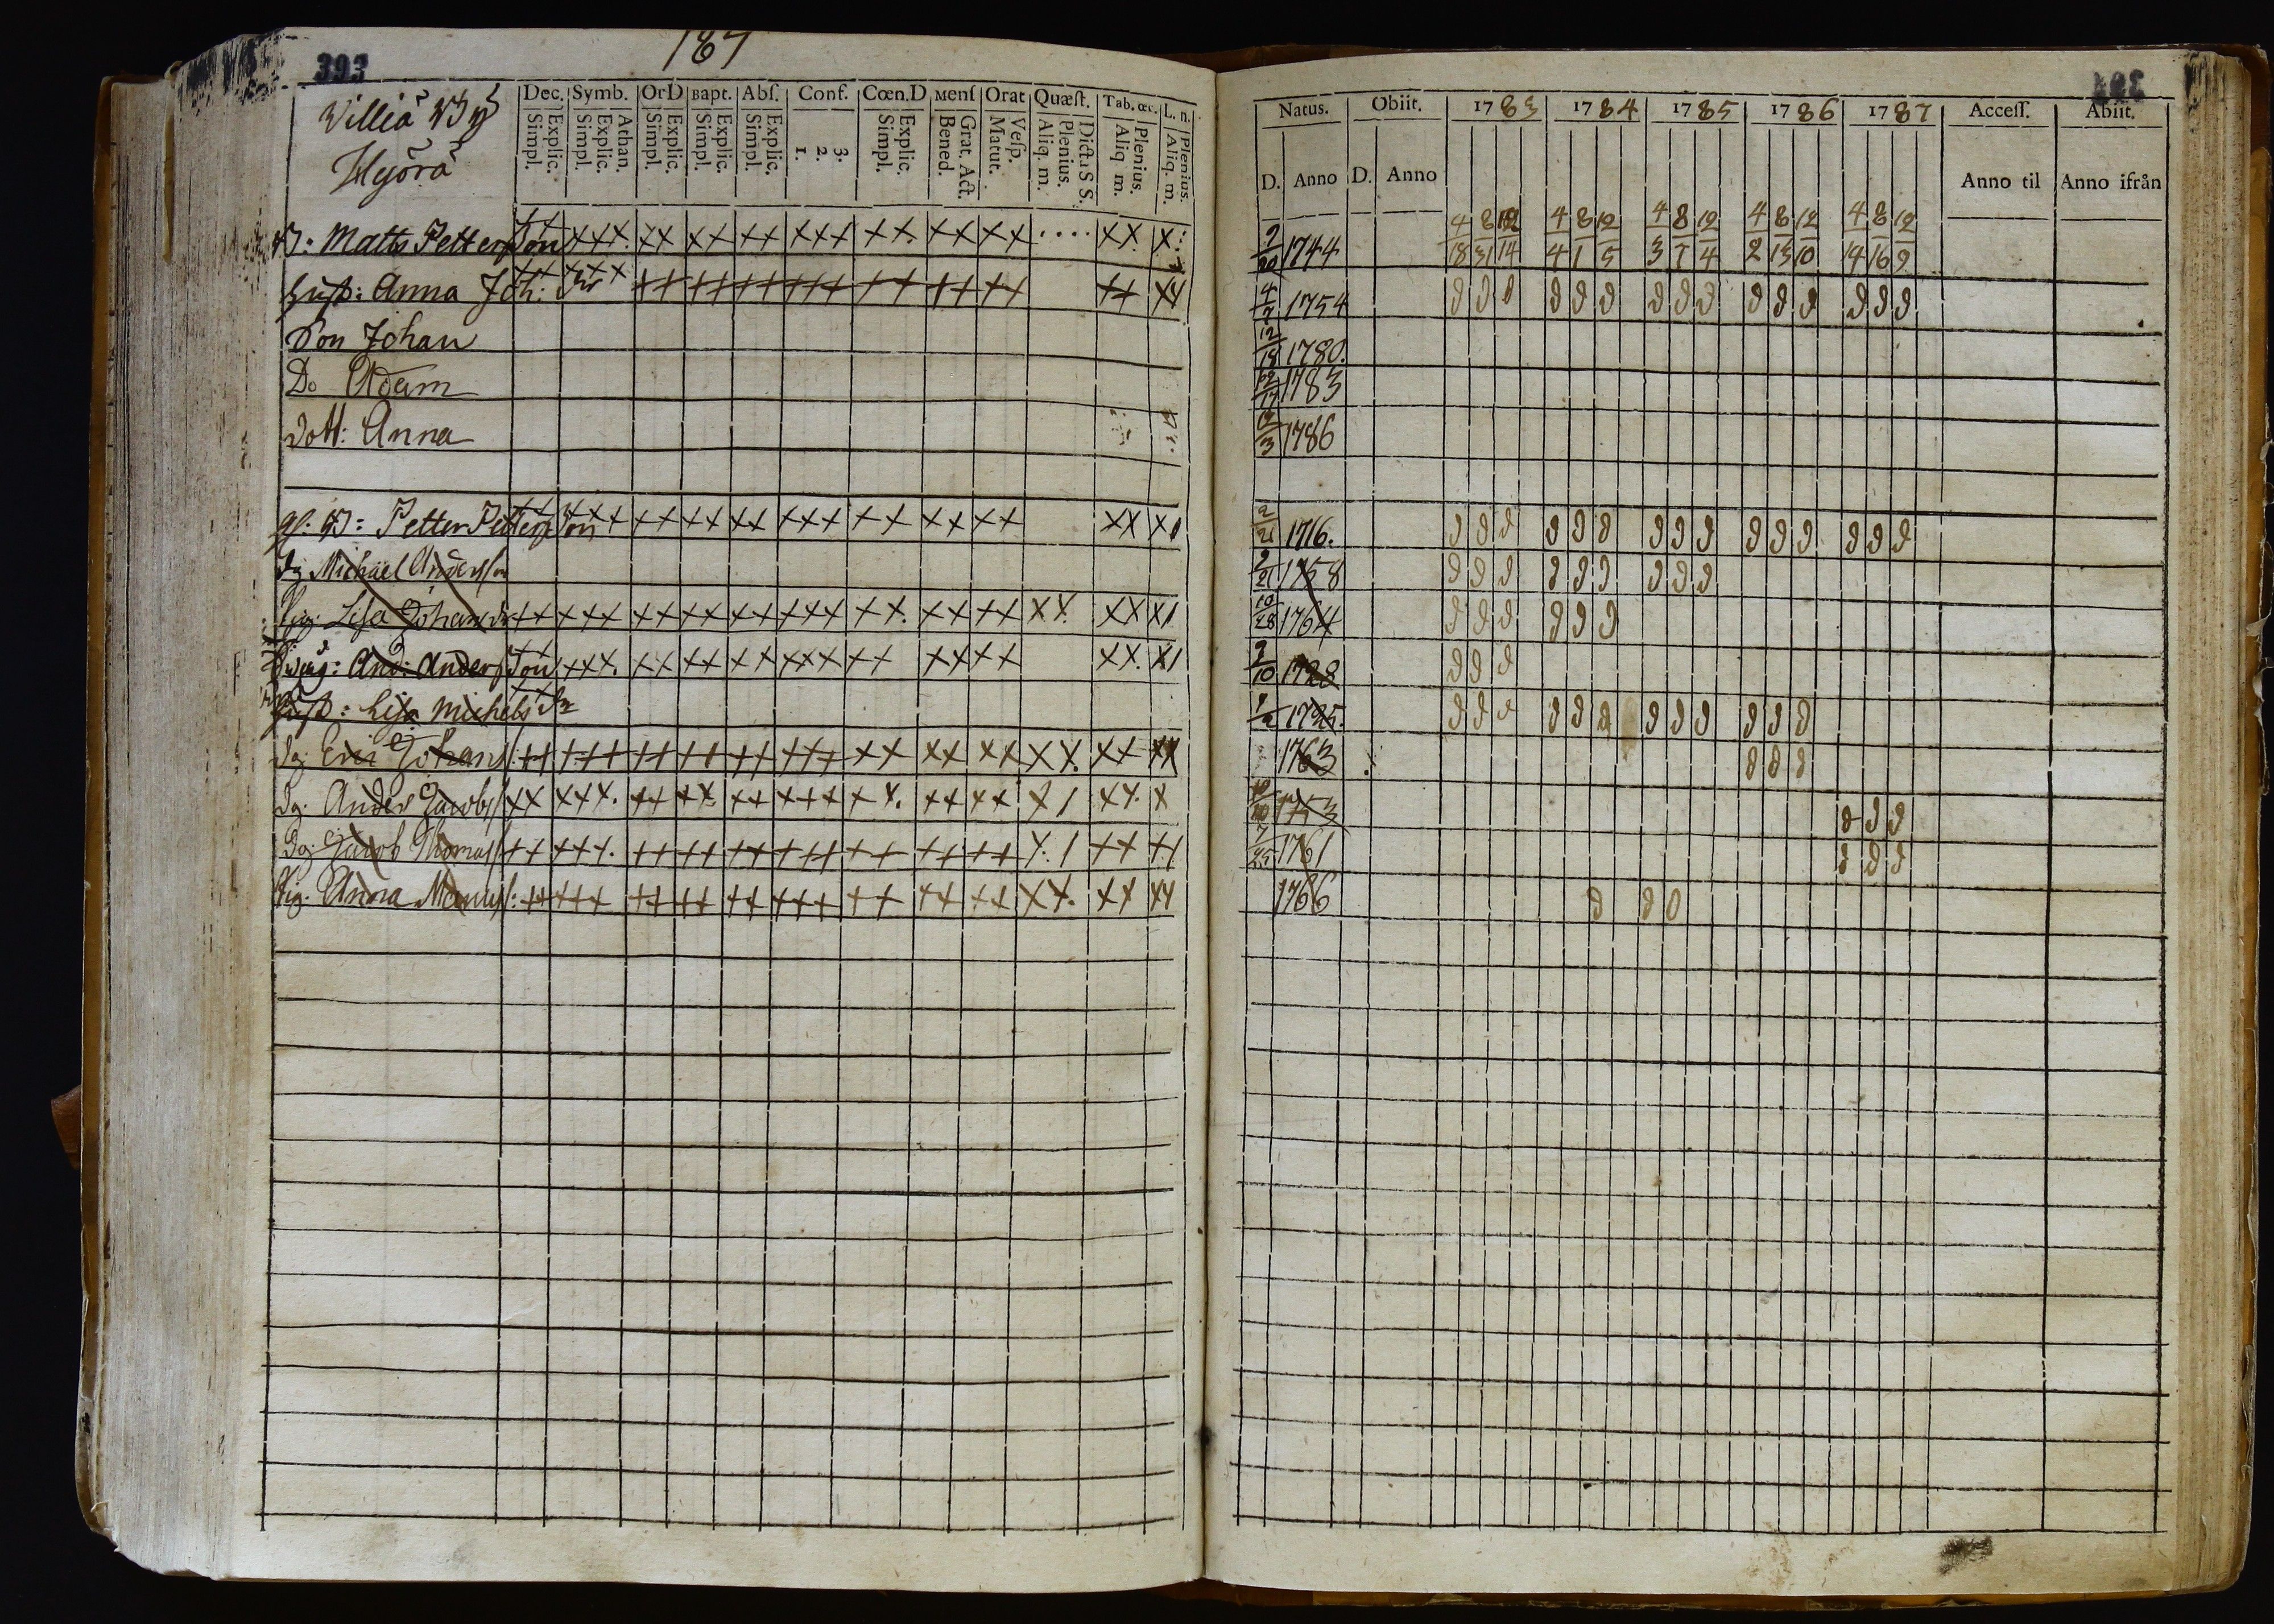 393
187
394
Williä By
Hyörä
Dec. Symb. OrD Bapt. Abſ. Conf. Cœn.D Menſ Orat Quæſt. Tab. œc. L. n.
Explic. Simpl. Athan. Explic. Simpl. Explic. Simpl. Explic. Simpl. Explic. Simpl. 3. 2. 1. Explic. Simpl. Grat. Act. Bened. Veſp. Matut. Dicta S S. Plenius. Aliq. m. Plenius. Aliq m. Plenius. Aliq. m.
Natus. Obiit. 1783 1784 1785 1786 1787 Acceſſ. Abiit.
D. Anno D. Anno Anno til Anno ifrån
4 8 12 4 8 12 4 8 12 4 8 12 4 8 12
18 31 14 4 1 5 3 7 4 2 13 10 14 16 9
B: Matts Petterſson xx xxx. xx xx xx xxx xx. xx xx .... xx. x: 9/20 1744
Huſt: Anna Joh: dr xx xxx xx xx xx xxx xx xx xx xx xx 4/7 1754 d d d d d d d d d d d d d d d
Son Johan 12/18 1780.
Do Adam 12/17 1783
dott: Anna 12/3 1786
gl: B: Petter Petterſson xx xxx xx xx xx xxx xx xx xx xx x1 2/21 1716. d d d d d d d d d d d d d d d
dg Michael Andersſon 9/21 1758 d d d d d d d d d
Pig. Lisa Johans dr xx xxx xx xx xx xxx xx. xx xx xx xx x1 10/28 1764 d d d d d d
And: Anderſson xx xxx. xx xx xx xxx xx xx xx xx. x1 9/10 1728 d d d
Huſt: Lisa Michels dr 1725. d d d d d d d d d d d d
dg Eric Johansſ: xx xxx xx xx xx xxx xx xx xx xx. xx xx 1763 d d d
dg. Anders Jacobsſ xx xxx. xx xx xx xxx xx. xx xx x1 xx. x 1753 d d d
dg: Jacob Thomasſ xx xxx. xx xx xx xxx xx xx xx x.1 xx x1 7/25 1761 d d d
Pig. Anna Mattsſ: xx xxx xx xx xx xxx xx xx xx xx. xx xx 1766 d d d